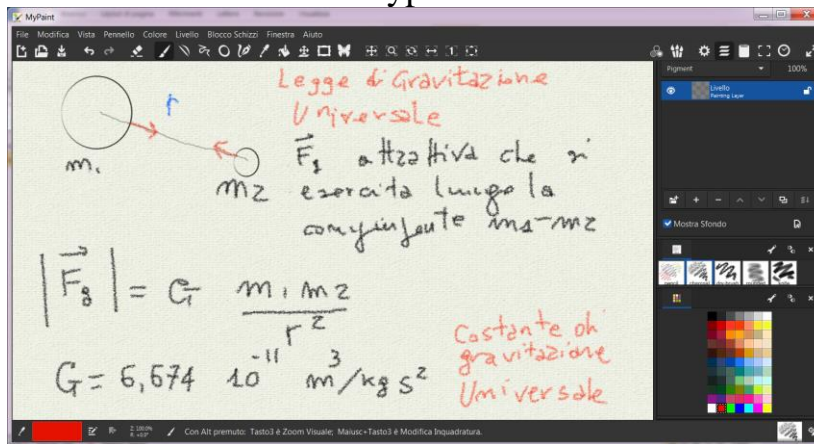 MyPaint
File Modifica Vista Pennello Colore Livello Blocco Schizzi Finestra Aiuto
Pigment 100%
Livello
Painting Layer
Legge di Gravitazione
Universale
r
m₁
m2
F⃗g attrattiva che si
esercita lungo la
congiungente m1-m2
Mostra Sfondo
|F⃗g| = G m₁ m2 / r²
G = 6,674 10⁻¹¹ m³/kg s²
Costante di
gravitazione
Universale
Con Alt premuto: Tasto3 è Zoom Visuale; Maiusc+Tasto3 è Modifica Inquadratura.